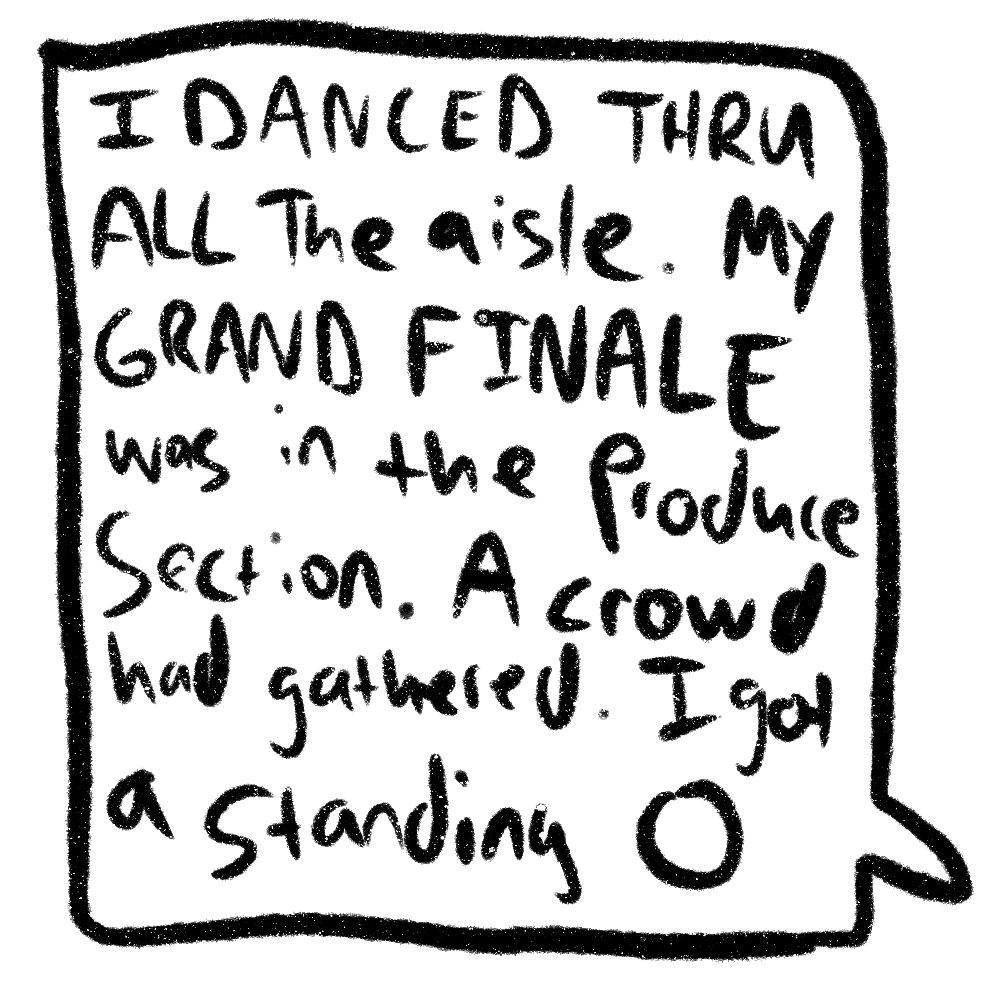 I DANCED THRU
ALL The aisle. My
GRAND FINALE
was in the Produce
Section. A crowd
had gathered. I got
a standing O